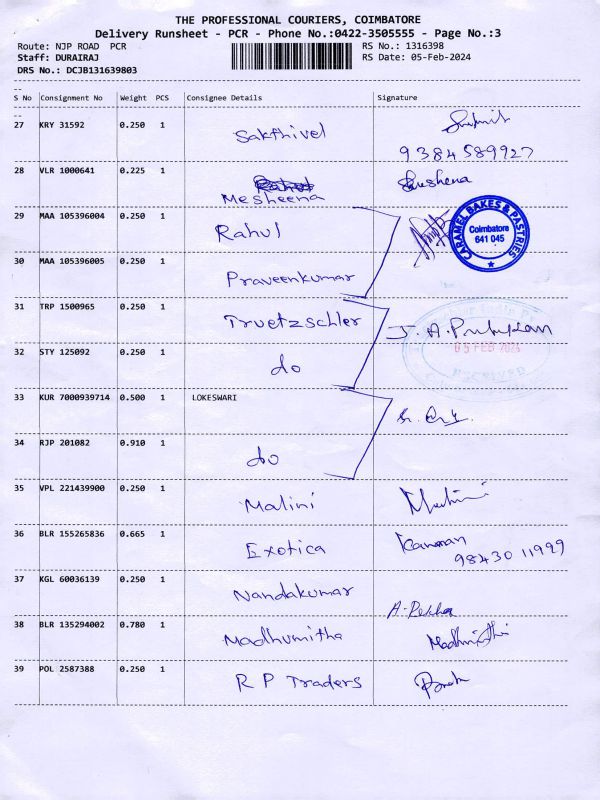 THE PROFESSIONAL COURIERS, COIMBATORE
Delivery Runsheet - PCR - Phone No.:0422-3505555 - Page No.:3
Route: NJP ROAD PCR RS No.: 1316398
Staff: DURAIRAJ RS Date: 05-Feb-2024
DRS No.: DCJB131639803
--
S No Consignment No Weight PCS Consignee Details Signature
--
27 KRY 31592 0.250 1 Sakthivel
9384589927
28 VLR 1000641 0.225 1 Mesheena
29 MAA 105396004 0.250 1 Rahul
CARAMEL BAKES & PASTRIES
Coimbatore
641 045
30 MAA 105396005 0.250 1 Praveenkumar
31 TRP 1500965 0.250 1 Truetzschler
05 FEB 2024
32 STY 125092 0.250 1 do
RECEIVED
33 KUR 7000939714 0.500 1 LOKESWARI
34 RJP 201082 0.910 1 do
35 VPL 221439900 0.250 1 Malini Malini
36 BLR 155265836 0.665 1 Exotica Kannan
98430 11999
37 KGL 60036139 0.250 1 Nandakumar A. Rekha
38 BLR 135294002 0.780 1 Madhumitha
39 POL 2587388 0.250 1 R P Traders